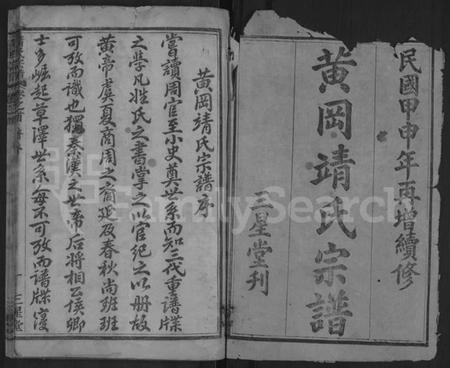 民國甲申年再增續修
黄岡靖氏宗譜
三星堂刊
黄岡靖氏宗譜序
嘗讀周官至小史奠世系而知三代重譜牒
之學凡姓氏之書掌之以官紀之以册故
黄帝虞夏商周之裔延及春秋尚班班
可攷而識也獨秦漢之世帝后將相公侯卿
士多崛起草澤世系毎不可攷而譜牒寖
FamilySearch